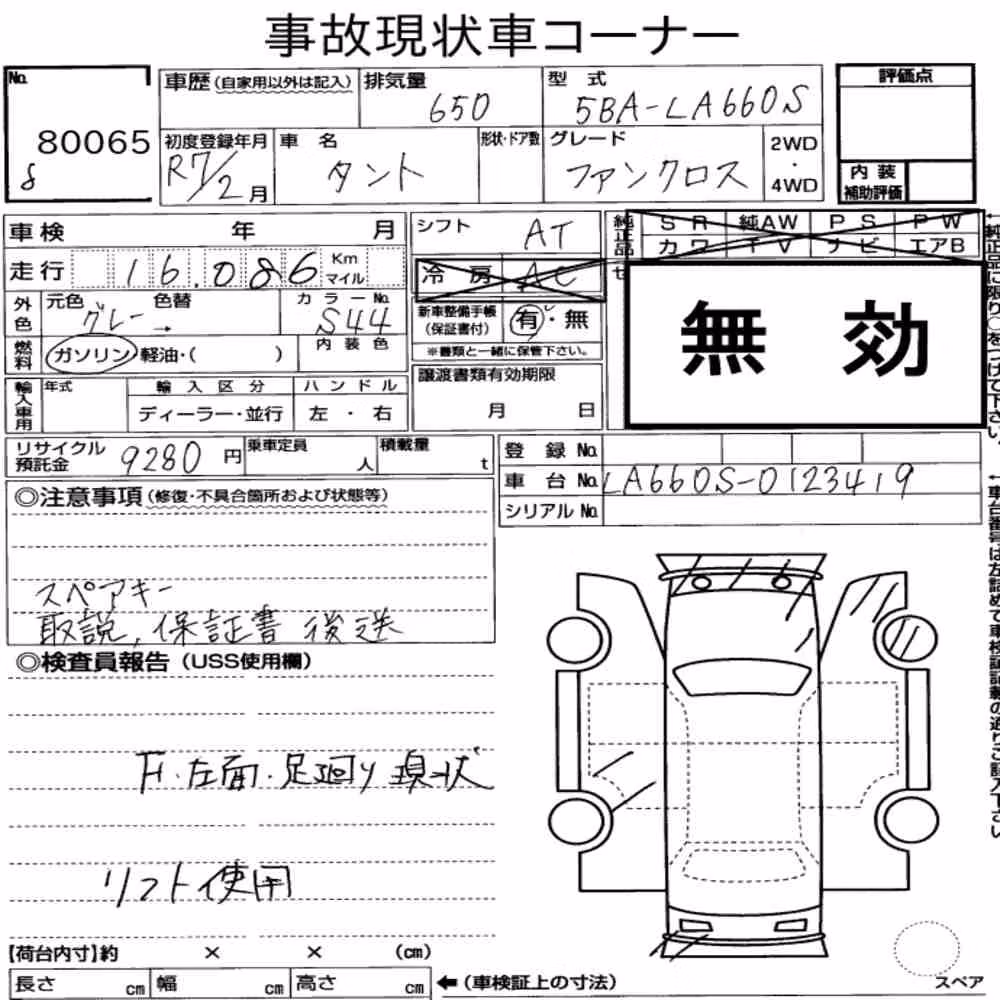 事故現状車コーナー
No. 80065 8
車歴(自家用以外は記入) 排気量 650 型式 5BA-LA660S 評価点
初度登録年月 R7/2月 車名 タント 形状・ドア数 グレード ファンクロス 2WD・4WD 内装補助評価
車検 年 月 シフト AT 純正品 SR 純AW PS PW
カワ TV ナビ エアB
走行 16.086 Km マイル 冷房 AC
外色 元色 グレー → 色替 カラーNo. S44 新車整備手帳(保証書付) 有・無 無効
内装色 ※書類と一緒に保管下さい。
燃料 ガソリン・軽油・( )
輸入車用 年式 輸入区分 ハンドル 譲渡書類有効期限
ディーラー・並行 左・右 月 日
リサイクル預託金 9280円 乗車定員 人 積載量 t 登録No.
車台No. LA660S-0123419
シリアルNo.
◎注意事項(修復・不具合箇所および状態等)
スペアキー
取説, 保証書 後送
◎検査員報告(USS使用欄)
F・左面・足廻り現状
リフト使用
【荷台内寸】約 × × (cm)
長さ cm 幅 cm 高さ cm ←(車検証上の寸法) スペア
←純正品に限り○をつけて下さい。
←車台番号は左詰めで車検証記載の通りご記入下さい